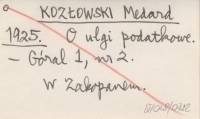 KOZŁOWSKI Medard
1925. O ulgi podatkowe.
– Góral 1, nr 2.
W Zakopanem.